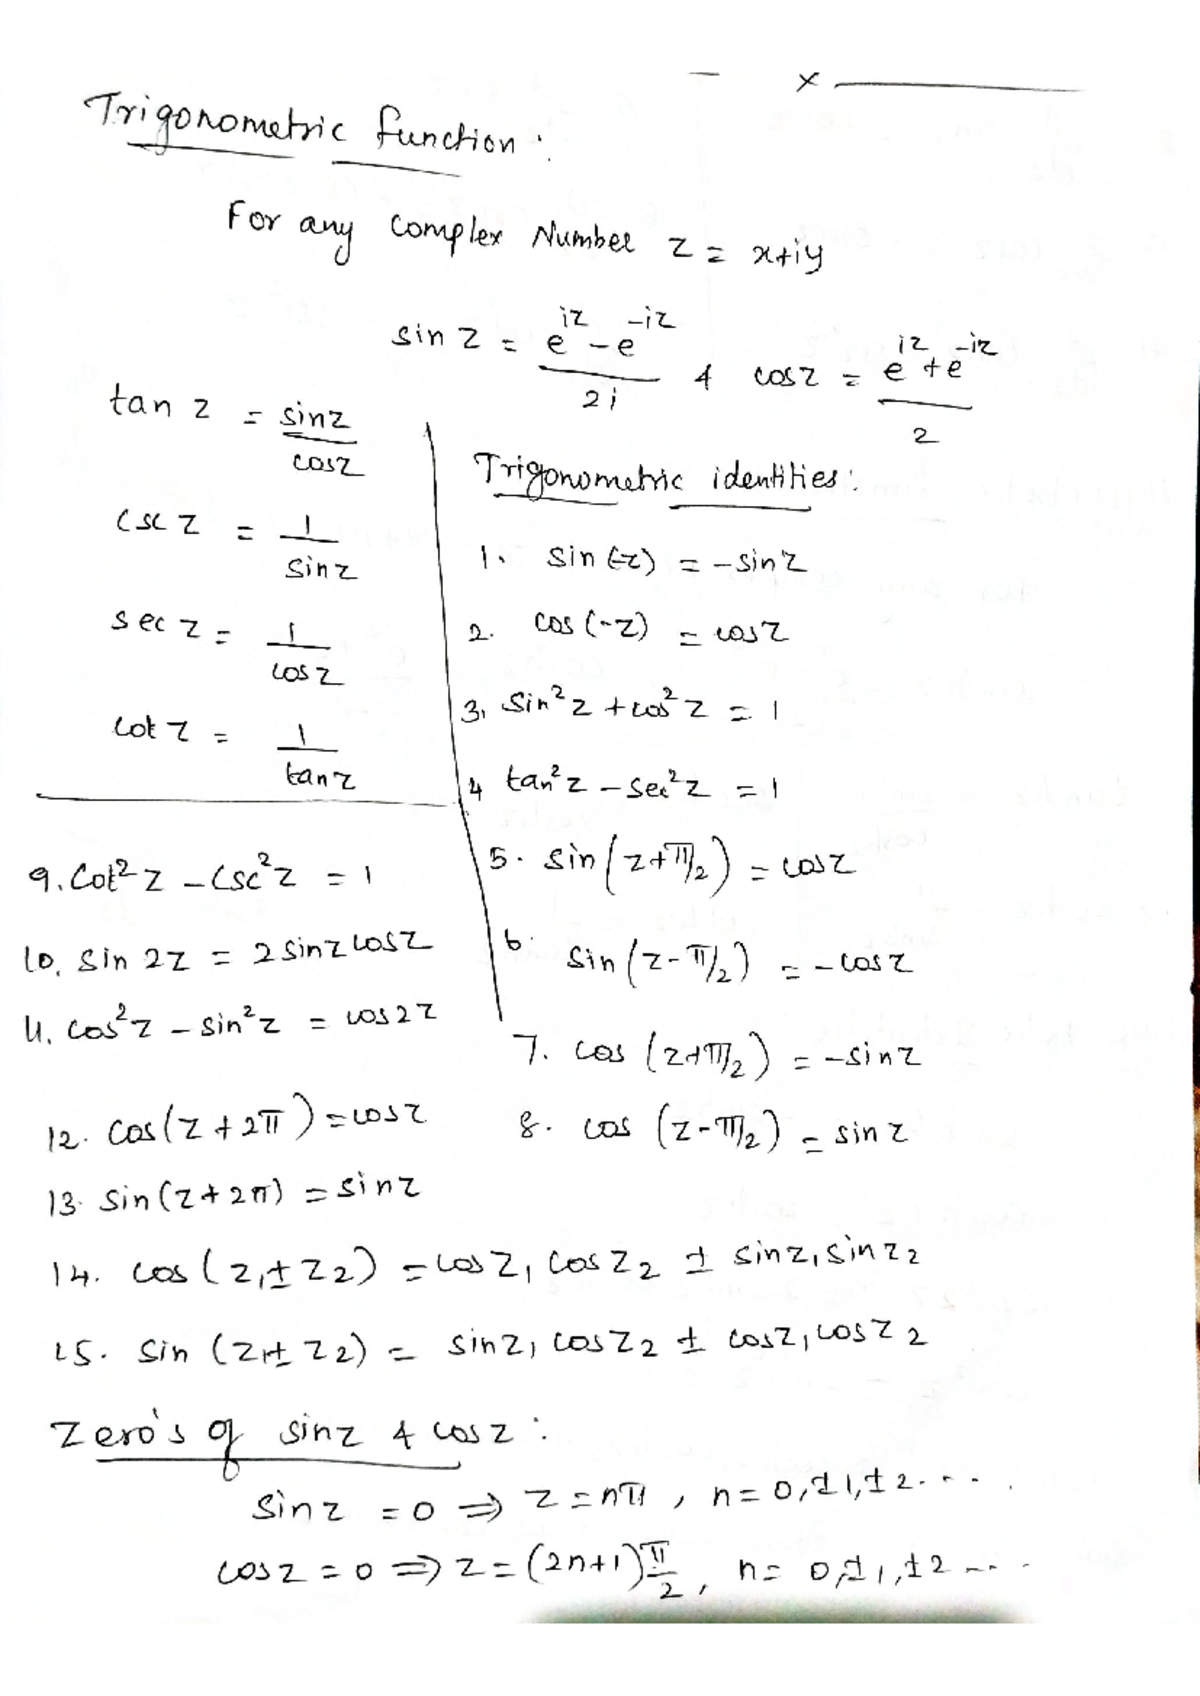 ×
Trigonometric function :
For any Complex Number z = x+iy
sin z = (e^{iz} - e^{-iz})/2i & cos z = (e^{iz} + e^{-iz})/2
tan z = sin z/cos z
csc z = 1/sin z
sec z = 1/cos z
cot z = 1/tan z
Trigonometric identities:
1. sin(-z) = -sin z
2. cos(-z) = cos z
3. sin²z + cos²z = 1
4 tan²z - sec²z = 1
5. sin(z+π/2) = cos z
6. sin(z-π/2) = -cos z
7. cos(z+π/2) = -sin z
8. cos(z-π/2) = sin z
9. Cot²z - Csc²z = 1
10. sin 2z = 2 sin z cos z
11. cos²z - sin²z = cos 2z
12. cos(z+2π) = cos z
13. sin(z+2π) = sin z
14. cos(z₁±z₂) = cos z₁ cos z₂ ± sin z₁ sin z₂
15. sin(z₁±z₂) = sin z₁ cos z₂ ± cos z₁ cos z₂
Zero's of sin z & cos z :
sin z = 0 ⇒ z = nπ, n = 0, ±1, ±2 ....
cos z = 0 ⇒ z = (2n+1)π/2, n = 0, ±1, ±2 ....